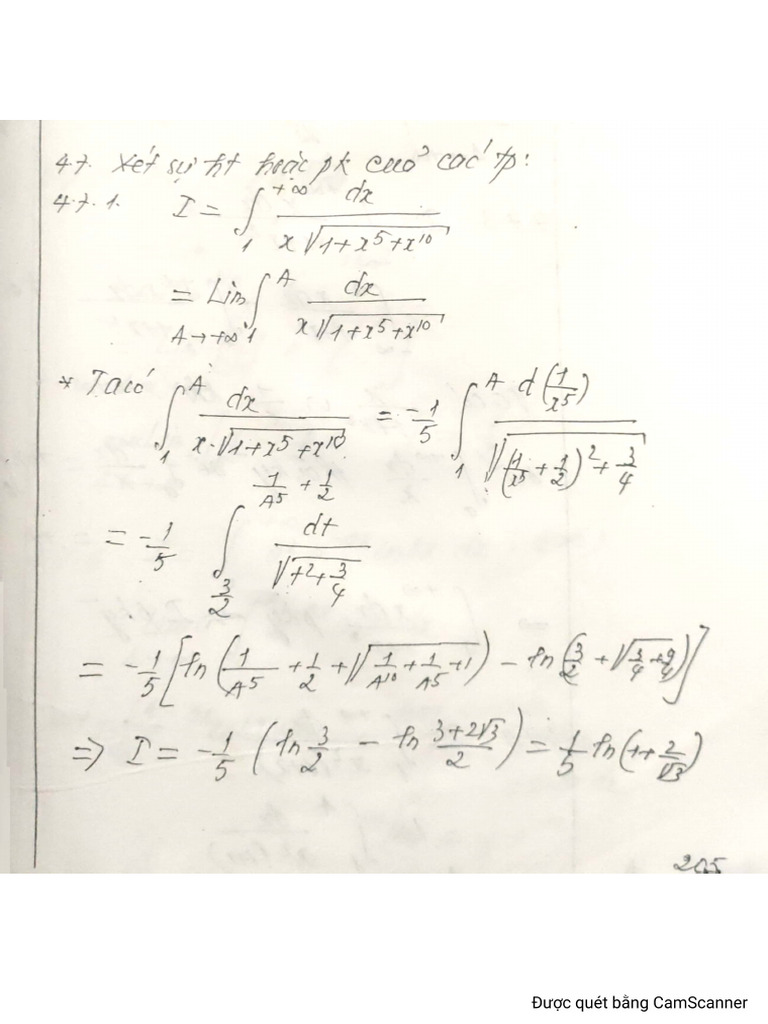 4.7. Xét sự ht hoặc pk của các tp:
4.7.1. I = ∫₁^{+∞} dx / (x√(1+x⁵+x¹⁰))
= Lim_{A→+∞} ∫₁^A dx / (x√(1+x⁵+x¹⁰))
* Ta có ∫₁^A dx / (x·√(1+x⁵+x¹⁰)) = -1/5 ∫₁^A d(1/x⁵) / √((1/x⁵+1/2)²+3/4)
= -1/5 ∫_{3/2}^{1/A⁵+1/2} dt / √(t²+3/4)
= -1/5 [ln(1/A⁵+1/2+√(1/A¹⁰+1/A⁵+1)) - ln(3/2+√(3/4+9/4))]
=> I = -1/5 (ln 3/2 - ln (3+2√3)/2) = 1/5 ln(1+2/√3)
205
Được quét bằng CamScanner